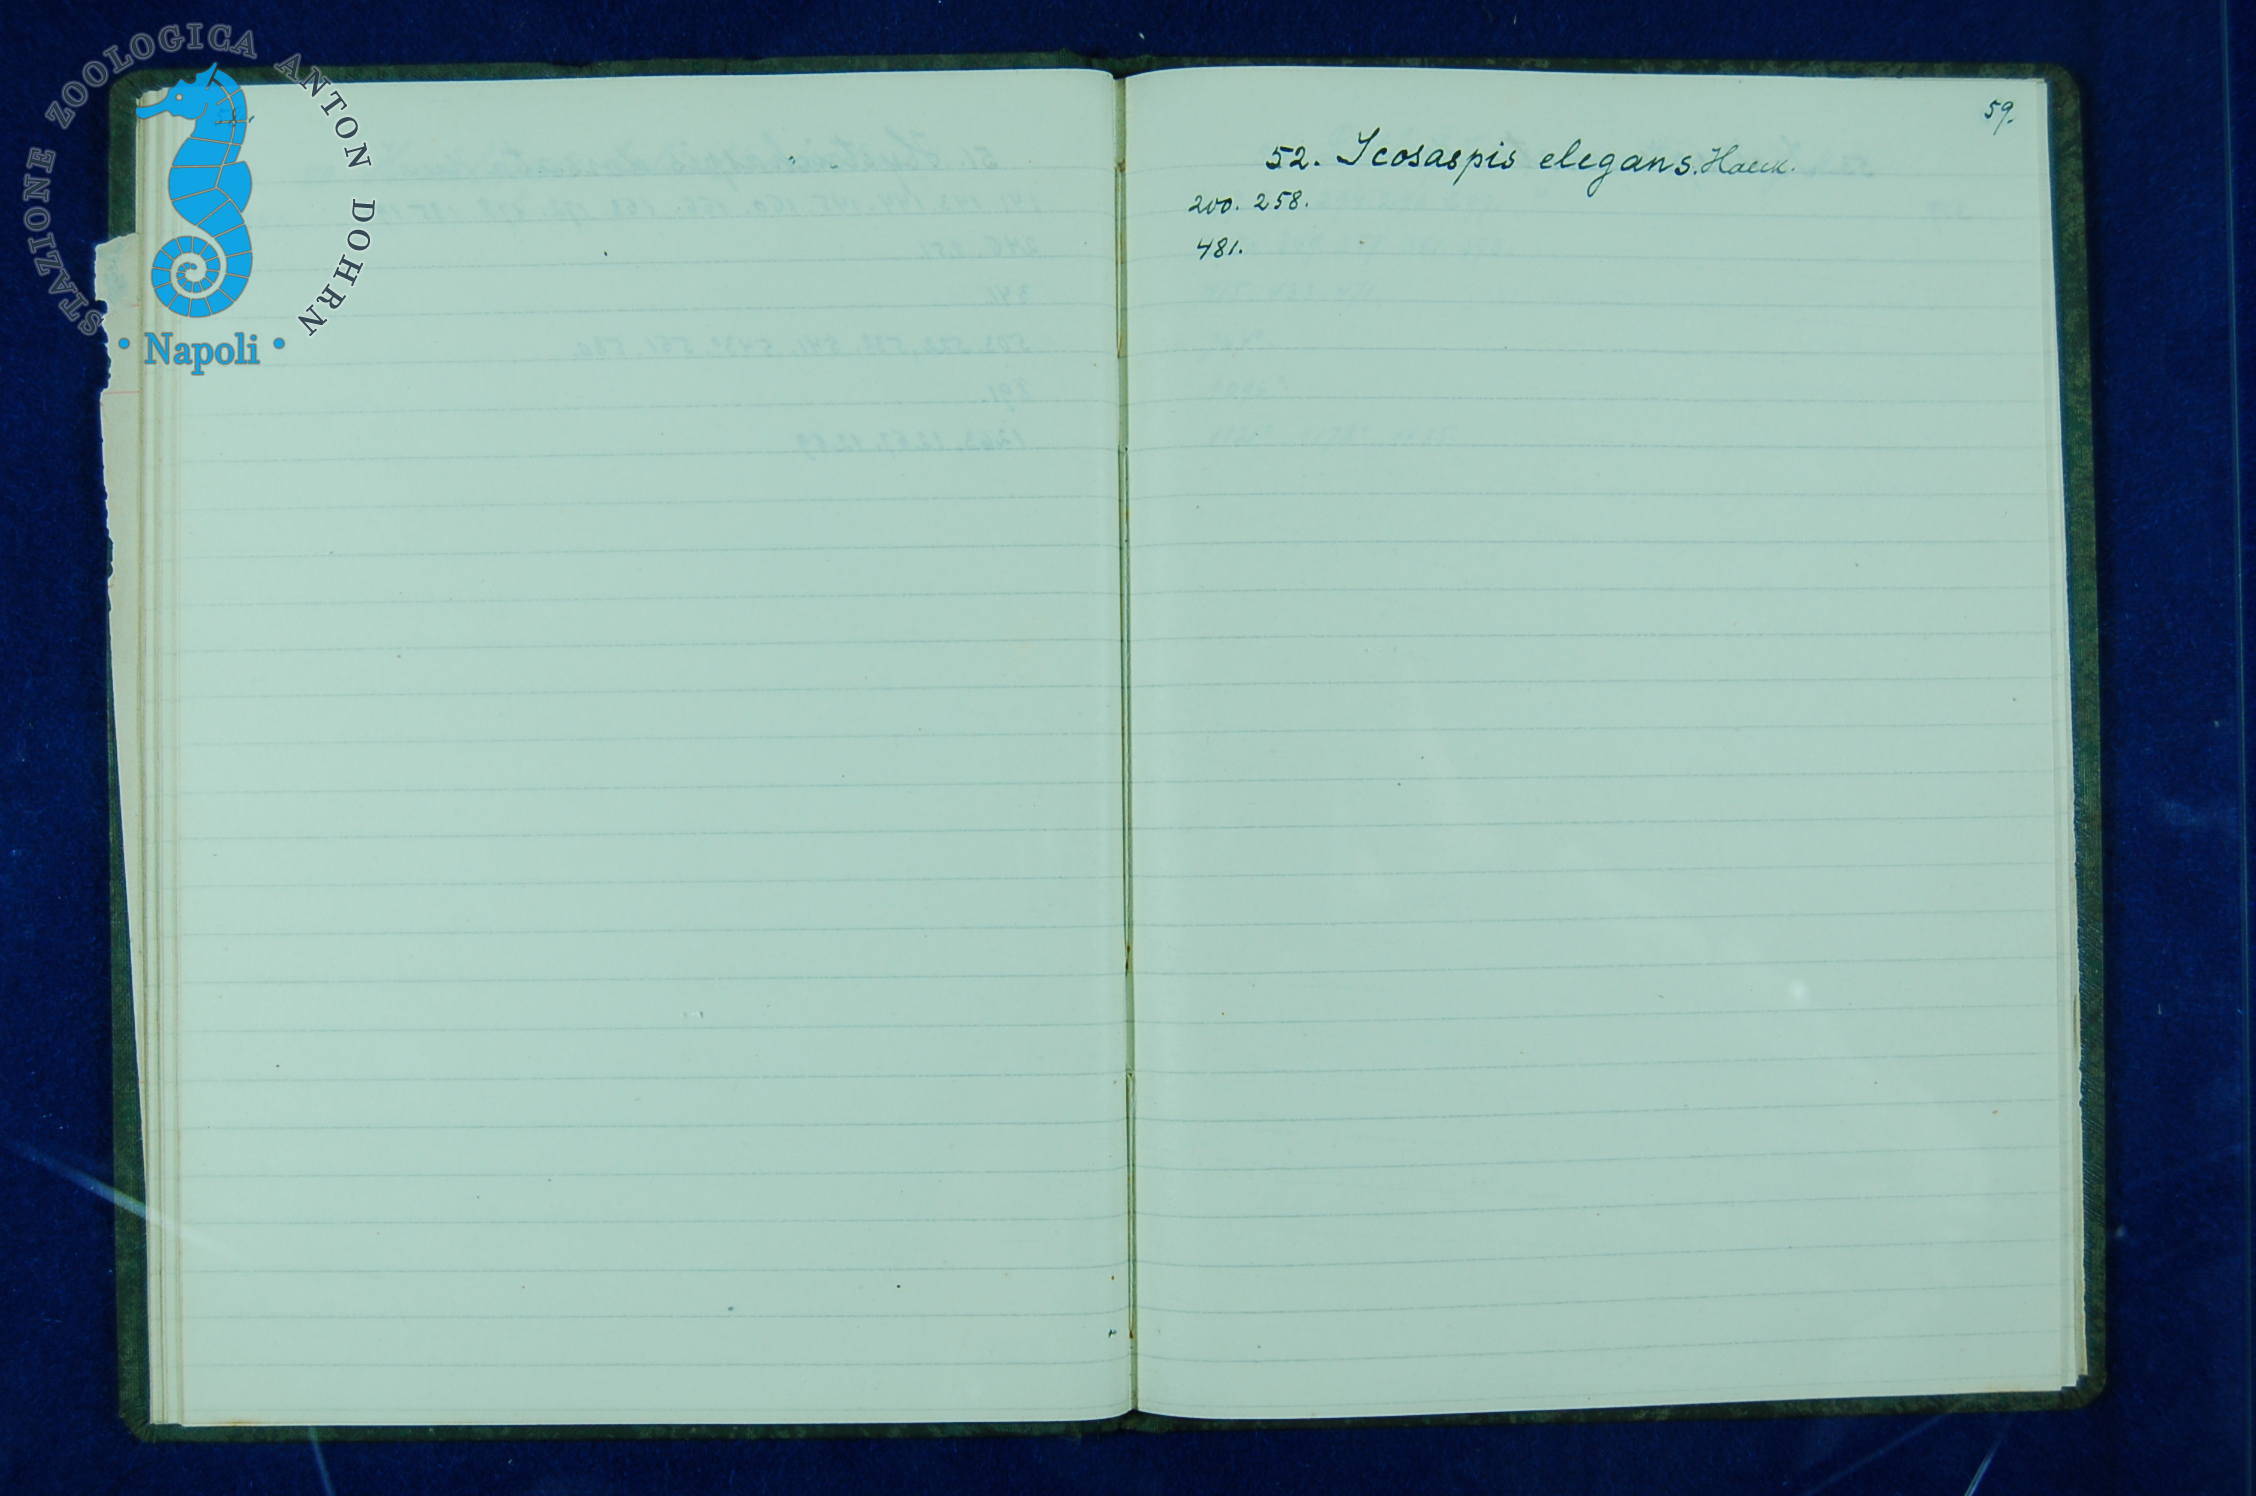 STAZIONE ZOOLOGICA ANTON DOHRN
• Napoli •
59.
52. Icosaspis elegans. Haeck.
200. 258.
481.